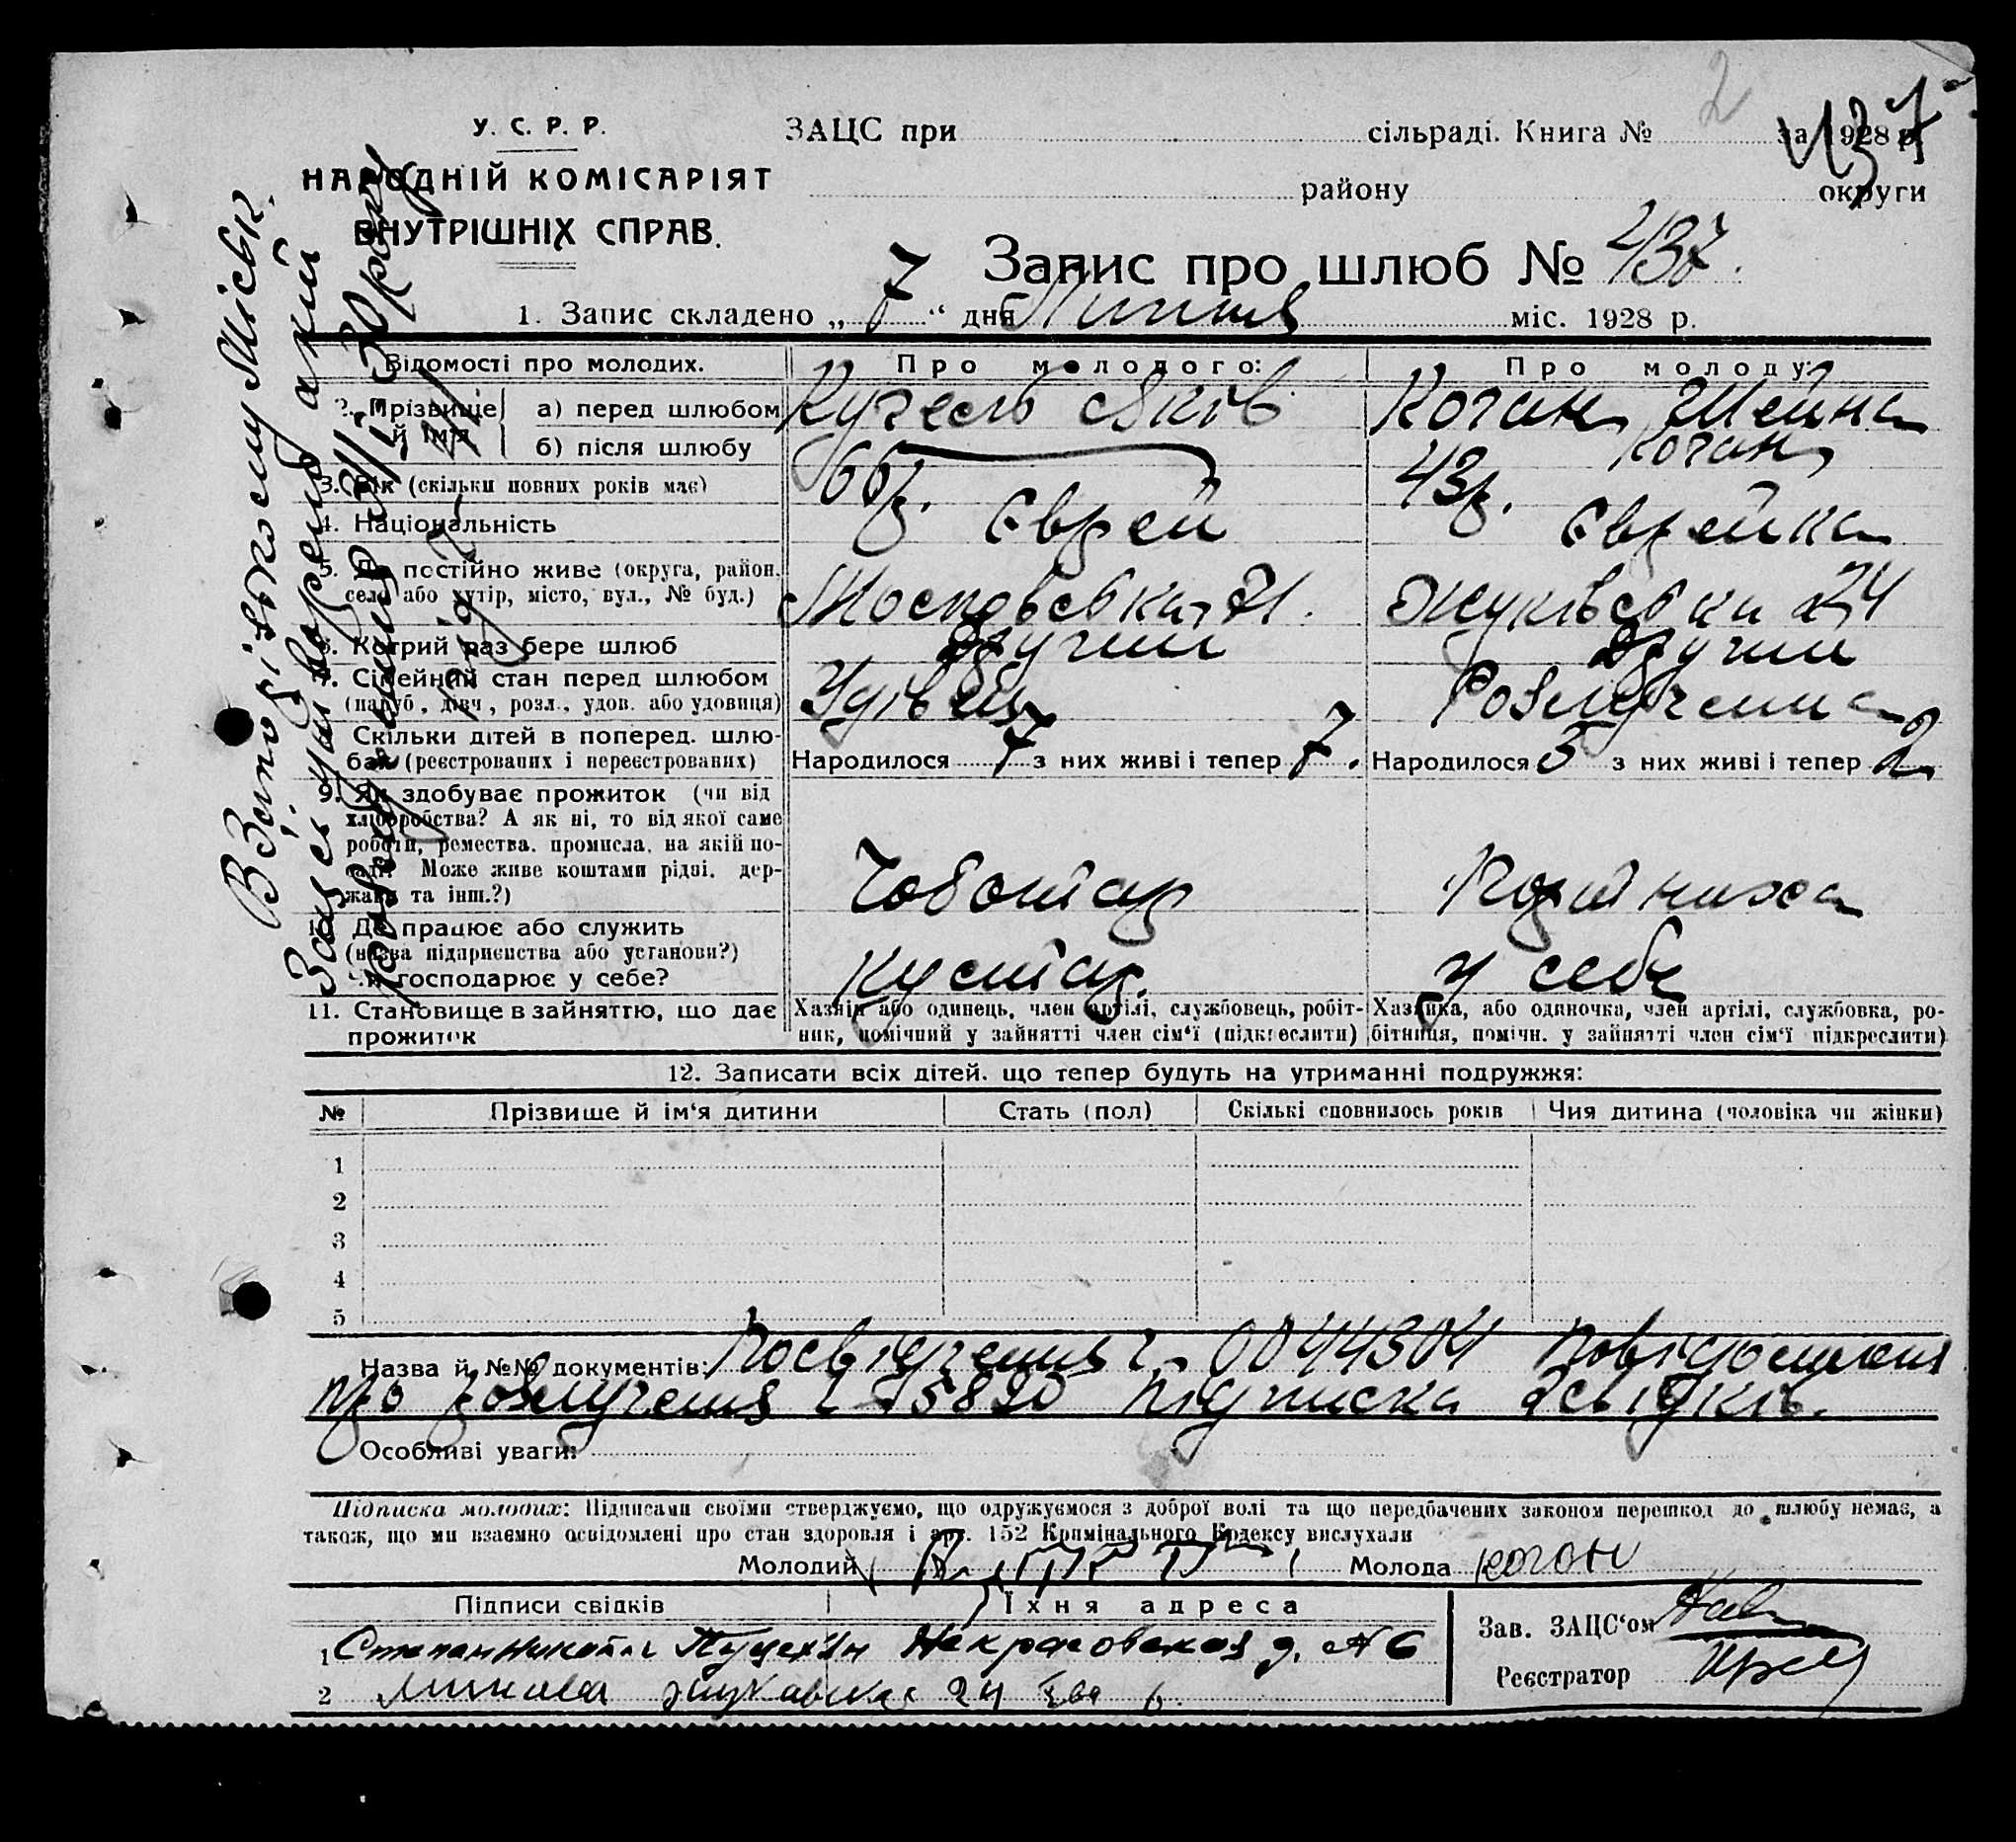 2
437
У. С. Р. Р.
НАРОДНІЙ КОМІСАРІЯТ
ВНУТРІШНІХ СПРАВ.
ЗАЦС при сільраді. Книга № за 1928 р.
району округи
Запис про шлюб № 437.
1. Запис складено „ 7 “ дня Липня міс. 1928 р.
Відомості про молодих. Про молодого: Про молоду:
2. Прізвище й ім'я а) перед шлюбом Яків Коган Шейна
б) після шлюбу Коган
3. Вік (скільки повних років має) 66 р. 43 р.
4. Національність Єврей Єврейка
5. Де постійно живе (округа, район, село або хутір, місто, вул., № буд.) Московська 71. Жуківська 24
6. Котрий раз бере шлюб другий другий
7. Сімейний стан перед шлюбом (паруб., дівч., розл., удов. або удовиця) Удівець Розлучена
Скільки дітей в поперед. шлюбах (реєстрованих і нереєстрованих) Народилося 7 з них живі і тепер 7. Народилося 5 з них живі і тепер 2
9. Як здобуває прожиток (чи від хліборобства? А як ні, то від якої саме роботи, ремества, промисла, на якій посаді? Може живе коштами рідні, держави та інш.?) Чоботар
Де працює або служить (назва підприємства або установи?) Чи господарює у себе? Кустар. у себе
11. Становище в зайняттю, що дає прожиток Хазяїн або одинець, член артілі, службовець, робітник, помічний у зайнятті член сім'ї (підкреслити) Хазяйка, або одиночка, член артілі, службовка, робітниця, помічн. у зайнятті член сім'ї підкреслити)
12. Записати всіх дітей, що тепер будуть на утриманні подружжя:
№ Прізвище й ім'я дитини Стать (пол) Скількі сповнилось років Чия дитина (чоловіка чи жінки)
1
2
3
4
5
Назва й №№ документів: Посвідчення ч. 0044304 Повідомлення
про розлучення ч 15890 підписка 2 свідків.
Особливі уваги:
Підписка молодих: Підписами своїми стверджуємо, що одружуємося з доброї волі та що передбачених законом перешкод до шлюбу немає, а
також, що ми взаємно освідомлені про стан здоровля і арт. 152 Кримінального Кодексу вислухали
Молодий Молода Коган
Підписи свідків Їхня адреса
1 Степан Некрасовская д. № 6
2 Жуковская 24 кв 6.
Зав. ЗАЦС'ом
Реєстратор